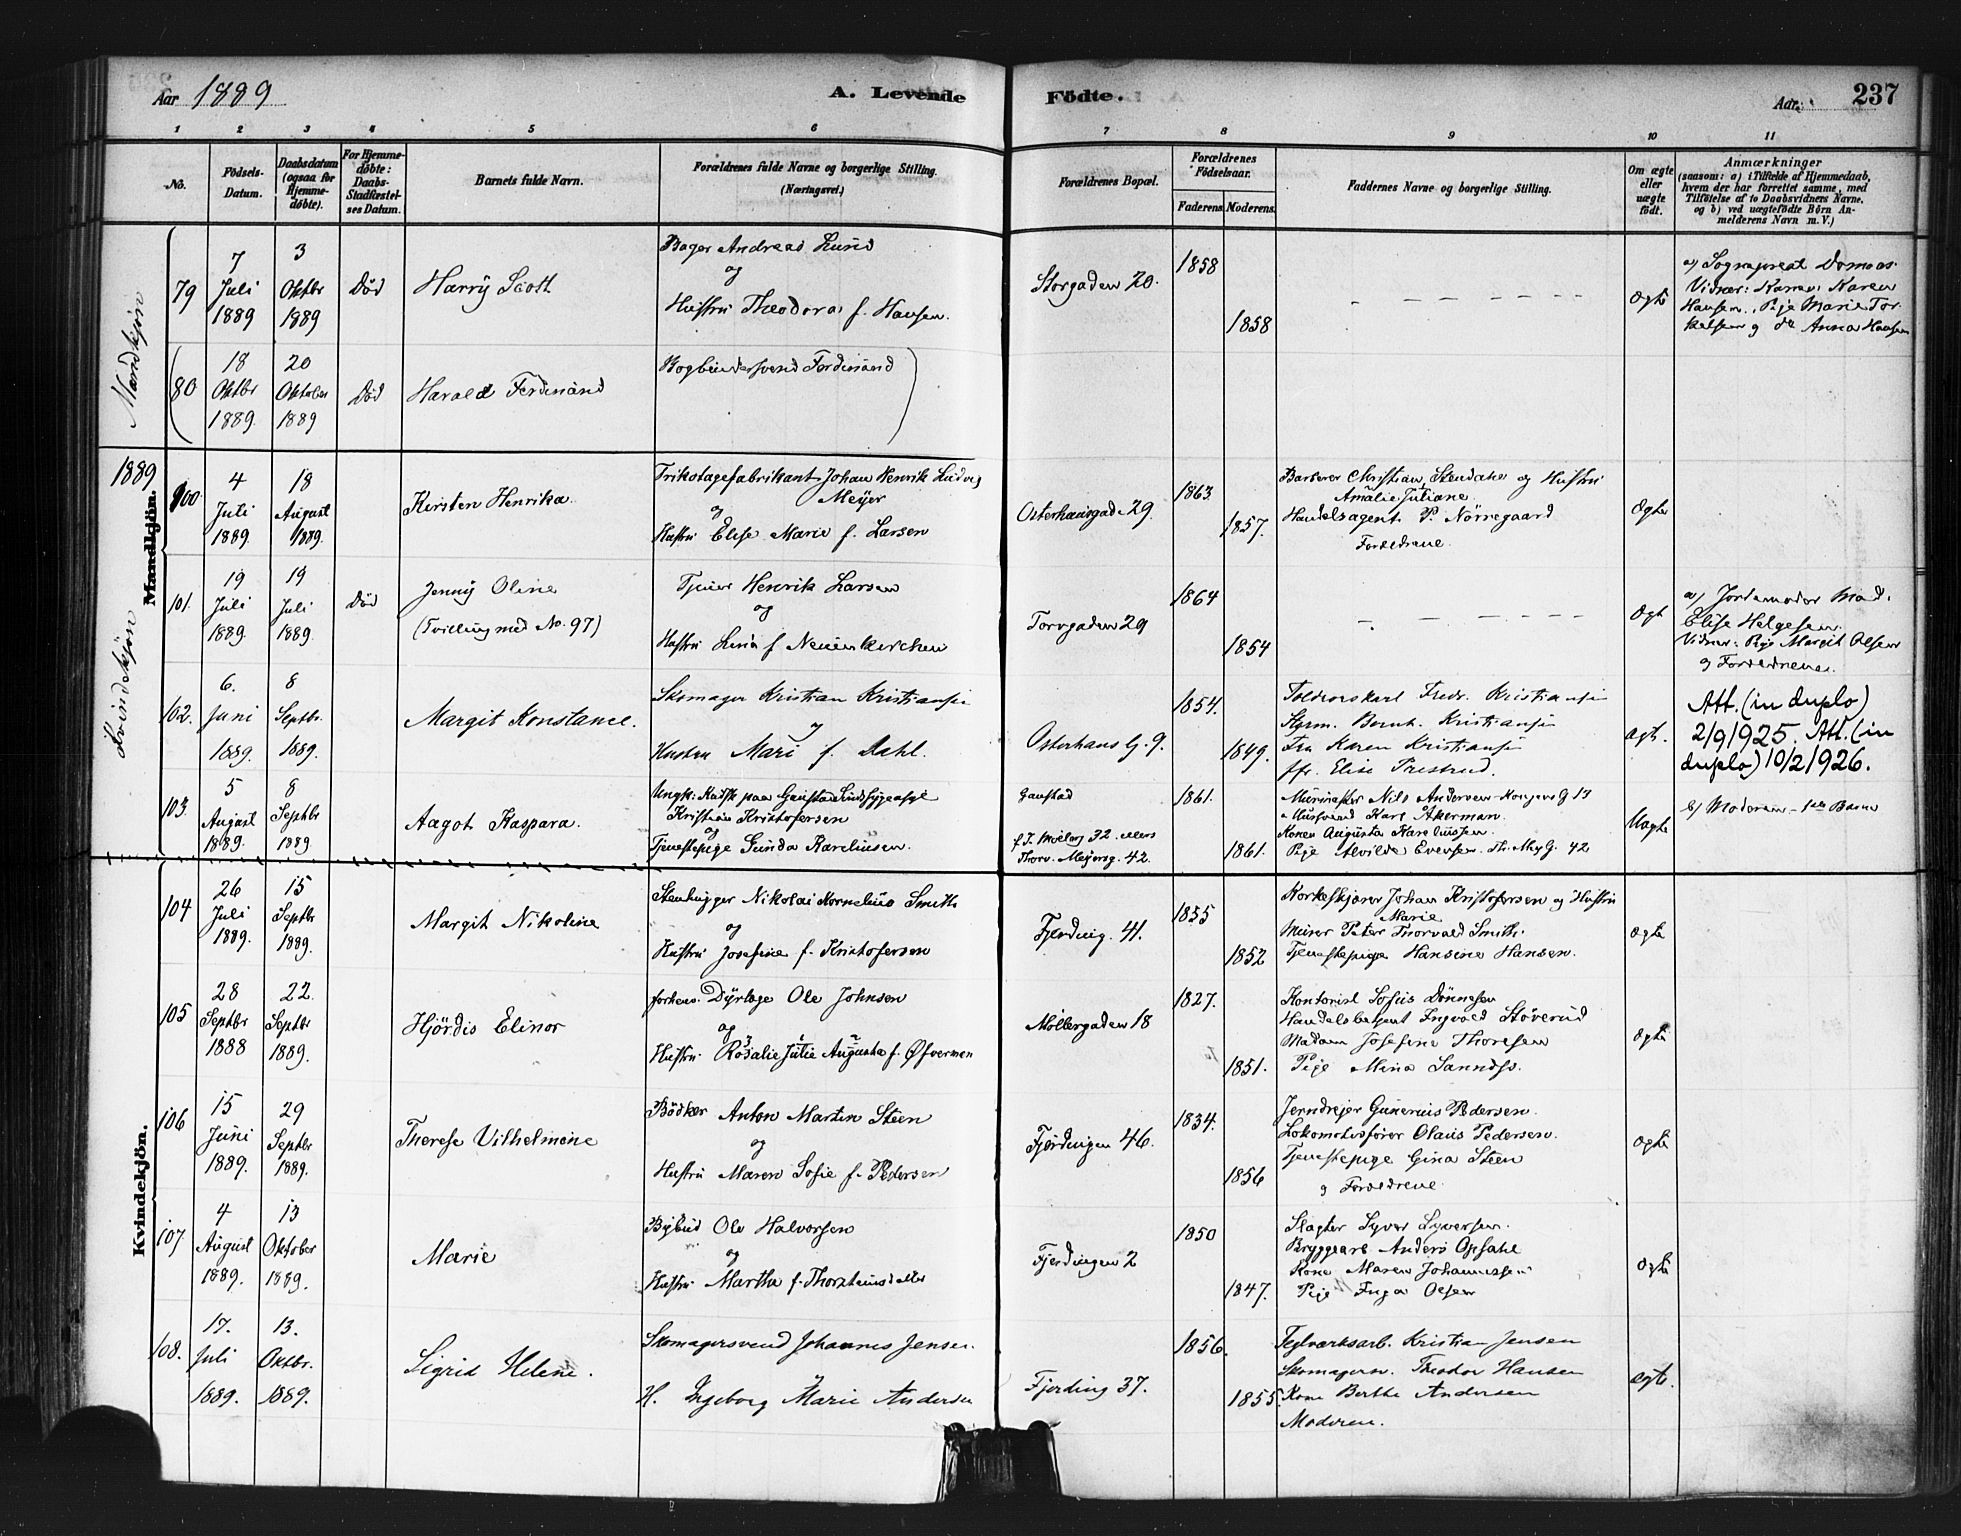 Aar 1889
A. Levende Födte.
Aar
237
1 2 3 4 5 6 7 8 9 10 11
No.
Födsels-Datum.
Daabsdatum (ogsaa for Hjemme-døbte).
For Hjemme-døbte: Daabs-Stadfæstel-ses Datum.
Barnets fulde Navn.
Forældrenes fulde Navne og borgerlige Stilling.
(Næringsvei.)
Forældrenes Bopæl.
Forældrenes Födselsaar.
Faderens. Moderens.
Faddernes Navne og borgerlige Stilling.
Om ægte eller uægte födt.
Anmærkninger
(saasom: a) i Tilfælde af Hjemmedaab,
hvem der har forrettet samme, med
Tilföielse af to Daabsvidners Navne,
og b) ved uægtefödte Börn An-
melderens Navn m. V.)
Mandkjön
79
7 Juli 1889
3 Oktbr 1889
Död
Harry Scott
Bager Andreas Lund
og
Hustru Theodora f. Hansen.
Storgaden 20.
1858
1858
Ægte
a) Sognepræst
Vidner:
Hansen, Pige Marie Tor-
kelsen og do Anna Hansen
80
18 Oktbr 1889.
20 Oktober 1889
Död
Harald Ferdinand
Bogbindersvend Ferdinand
1889
Mandkjön.
Kvindekjön
100
4 Juli 1889.
18 August 1889.
Kirsten Henrika.
Trikotagefabrikant Johan Henrik Ludvig
Meyer
og
Hustru Elise Marie f. Larsen
Osterhausgade 29.
1863
1857.
Barberer Christian Stendahl og Hustru
Amalie Juliane.
Handelsagent P. Nörregaard
Forældrene.
Ægte
101.
19 Juli 1889.
19 Juli 1889.
Död
Jenny Oline
(Tvilling med No. 97)
Tjener Henrik Larsen
og
Hustru Lina f. Neuenkirchen
Torvgaden 29
1864
1854
Ægt
a) Jordemoder Mad.
Elise Helgesen.
Vidner: Pige Margit Olsen
og Forældrene.
102.
6. Juni 1889.
8 Septbr. 1889.
Margit Konstance.
Skomager Kristian Kristiansen
og
Hustru Mari f. Dahl.
Osterhaus G. 9.
1854.
1849.
Toldrorskarl Fredr. Kristiansen
Styrm. Bernh. Kristiansen
Fru Karen Kristiansen
frk. Elise Trestrud.
ægte.
Att. (in duplo)
2/9 1925. Att. (in
duplo) 10/2 1926.
103.
5 August 1889.
8 Septbr 1889
Aagot Kaspara.
Ungk. Kudsk paa Gaustad Sindssygeasyl
Kristian Kristofersen
og
Tjenestepige Gunda Kareliusen.
Gaustad
32 ellers
Thorv. Meyersg. 42.
1861.
1861.
Murmester Nils Andersen
Husvend Karl Åkerman.
Konen Augusta Kareliussen.
Pige Alvilde Evensen. Th. Mey G. 42
Uægte
b) Moderen - 1ste Barn
Kvindekjön.
104
26 Juli 1889.
15 Septbr 1889.
Margit Nikoline
Stenhugger Nikolai Kornelius Smith
og
Hustru Josefine f. Kristofersen
Fjerding. 41.
1855
1852
Korkeskjærer Johan Kristofersen og Hustru
Marie
Murer Peter Thorvald Smith.
Tjenestepige Hansine Hansen.
ægte
105
28 Septbr 1888
22. Septbr 1889.
Hjördis Elinor
forhenv. Dyrlæge Ole Johnsen
og
Hustru Rosalie Julie Augusta f. Öfverman
3 1 2
Möllergaden 18
1827.
1851.
Kontorist Sofus Dönnesen
Handelsbetjent Ingvald Stöverud
Madam Josefine Thoresen
Pige Mina Sannæs.
ægte
106
15 Juni 1889.
29 Septbr 1889.
Therese Vilhelmine
Bödker Anton Martin Steen
og
Hustru Maren Sofie f. Pedersen
Fjerdingen 46.
1834.
1856
Jerndreier Gunerius Pedersen.
Lokomotivförer Olaus Pedersen.
Tjenestepige Gina Steen
og Forældrene
ægte
107
4 August 1889.
13 Oktober 1889.
Marie
Bybud Ole Halvorsen
og
Hustru Martha f. Thorsteinsdatter
Fjerdingen 2
1850
1847.
Slagter Syver Syversen.
Bryggearb. Anders Opsahl
Kone Maren Johannessen
Pige Inga Olsen
ægte
108.
17. Juli 1889.
13. Oktbr. 1889.
Sigrid Helene.
Skomagersvend Johannes Jensen
og
H. Ingeborg Marie Andersen
Fjerding 37.
1856.
1855
Teglværksarb. Kristian Jensen
Skomagersv. Theodor Hansen
Kone Berthe Andersen
Moderen.
ægte.